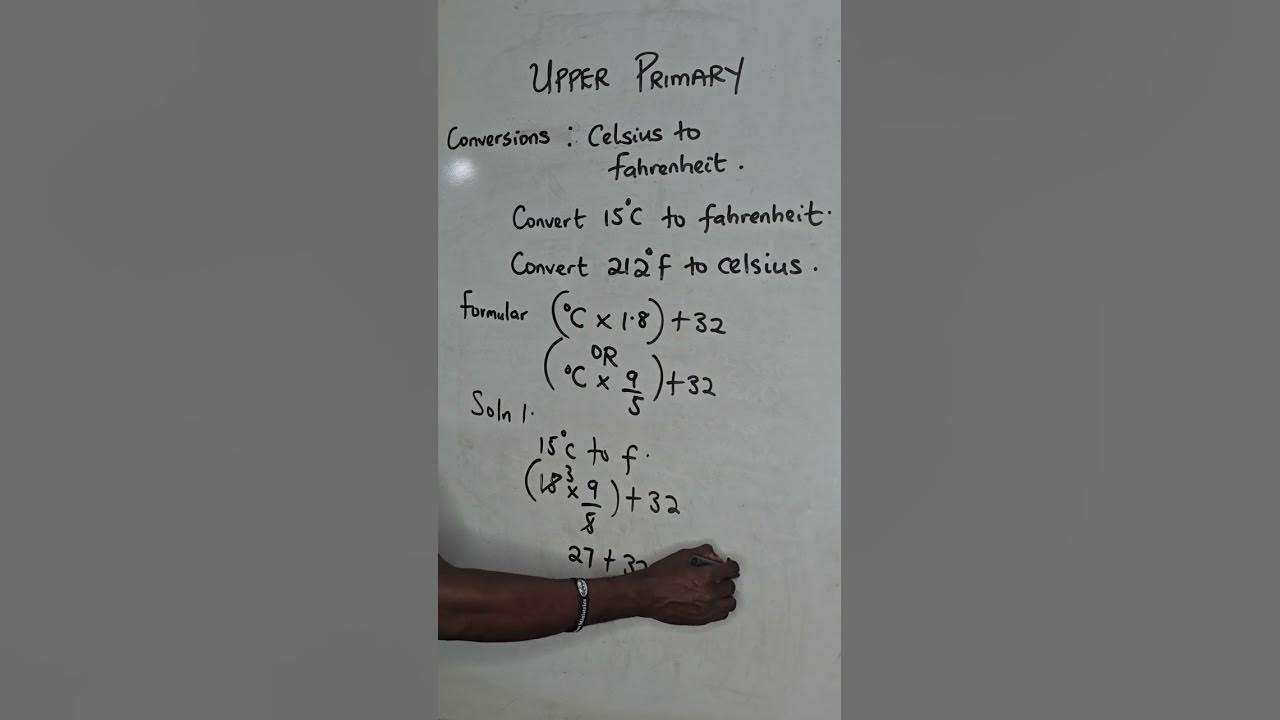 UPPER PRIMARY
Conversions : Celsius to
fahrenheit.
Convert 15°C to fahrenheit.
Convert 212°f to celsius.
formular (°C × 1.8) + 32
OR
(°C × 9/5) + 32
Soln 1.
15°C to f.
(15³ × 9/5) + 32
27 + 32